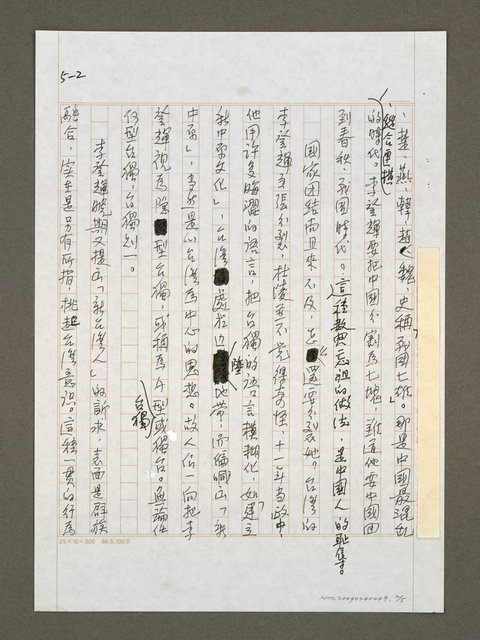 5-2
、楚、燕、韓、趙、魏，史稱戰國七雄。那是中國最混亂
、縱合連橫
的時代。李登輝要把中國分割為七塊，難道他要中國回
到春秋、戰國時代。這種數典忘祖的做法，是中國人的恥辱。
國家團結尚且來不及，怎還要分裂她。台灣的
李登輝主張分裂，杜陵並不覺得奇怪，十一年當政中，
他用許多晦澀的語言，把台獨的語言模糊化，如「建立
新中原文化」，台灣處於邊陲地帶，而偏叫「新
中原」，意思是以台灣為中心的思想。故人們一向把李
登輝視為隱型台獨，或稱為 型或獨台。無論任
何型台獨，台獨則一。
台獨
李登輝晚期又提出「新台灣人」的訴求，表面是群族
融合，實在是另有所指，挑起台灣意識。這種一貫的行為
25×10=300 86.5.100本
NMTL20090240049